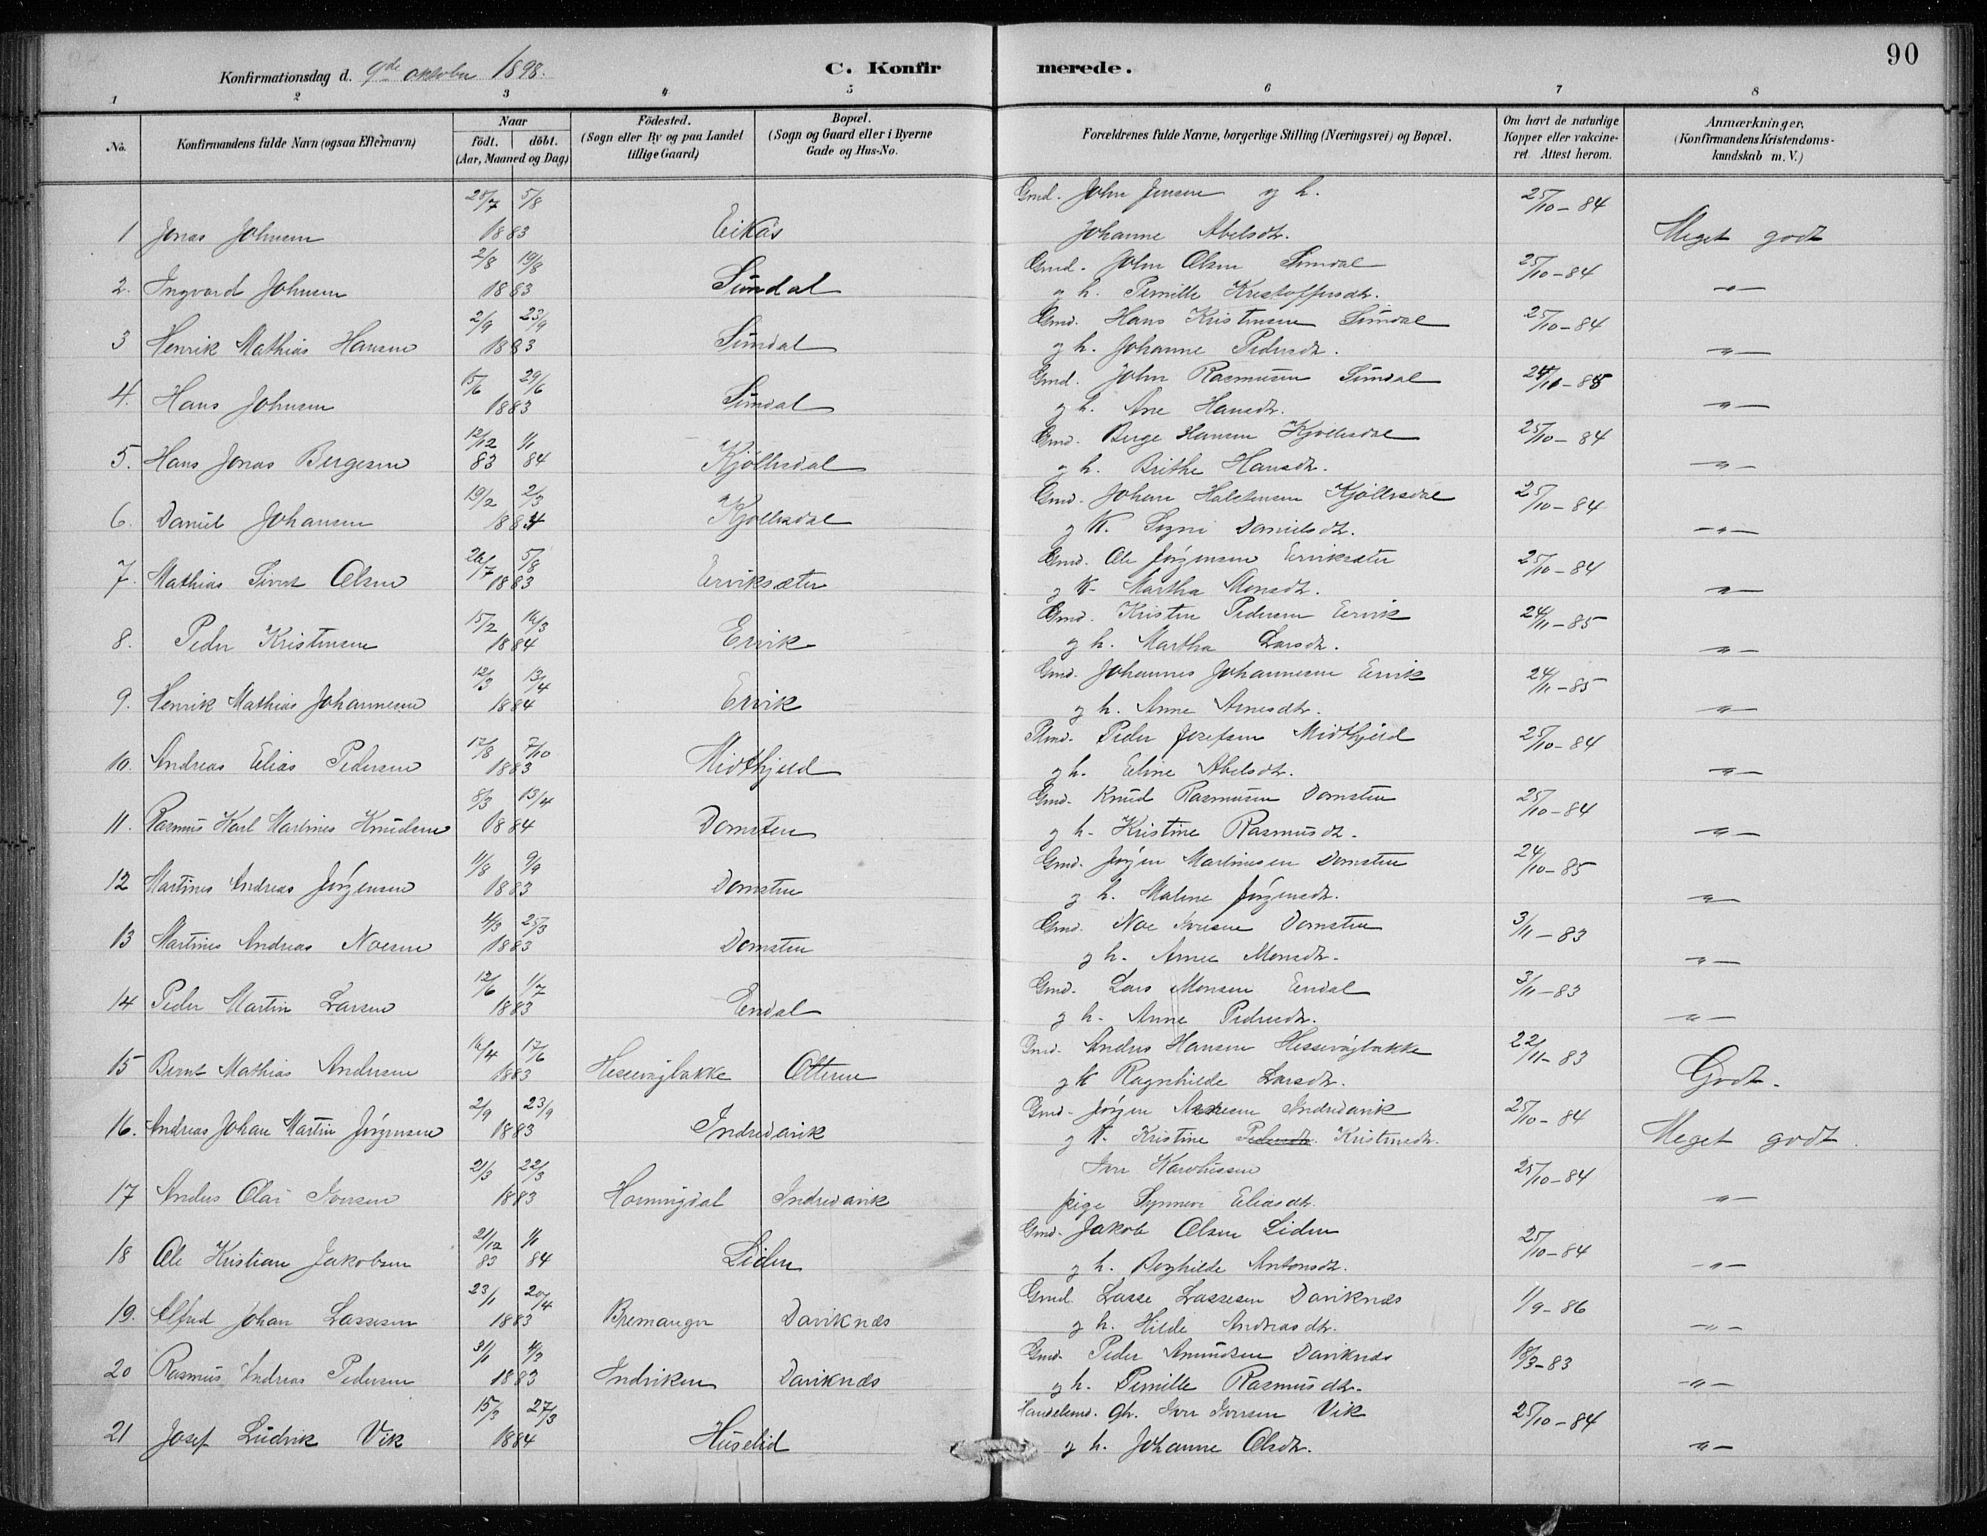 90
Konfirmationsdag d. 9de oktober 1898.
C. Konfirmerede.
1 2 3 4 5 6 7 8
No.
Konfirmandens fulde Navn (ogsaa Efternavn)
Naar
födt. döbt.
(Aar, Maaned og Dag)
Födested.
(Sogn eller By og paa Landet tillige Gaard)
Bopæl.
(Sogn og Gaard eller i Byerne Gade og Hus-No.
Forældrenes fulde Navne, borgerlige Stilling (Næringsvei) og Bopæl.
Om havt de naturlige Kopper eller vakcineret Attest herom.
Anmærkninger,
(Konfirmandens Kristendomskundskab m. V.)
1 Jonas Johnsen 5/8 1883 Eikås Gmd. John Jensen og h. 25/10-84
Johanne Abelsdtr. Meget godt
2. Ingvard Johnsen 2/8 19/8 1883 Sundal Gmd. John Olsen Sundal 25/10-84
og h. Pernille Kristoffersdtr. -"-
3 Henrik Mathias Hansen 2/9 23/9 1883 Sundal Gmd. Hans Kristensen Sundal 25/10-84
og h. Johanne Pedersdtr. -"-
4. Hans Johnsen 15/6 29/6 1883 Sundal Gmd. John Rasmusen Sundal
og h. Ane Hansdtr. -"-
5. Hans Jonas Bergesen 12/12 83 1/1 84 Kjöllesdal Gmd. Berge Hansen Kjöllesdal 25/10-84
og h. Brithe Hansdtr. -"-
6. Daniel Johansen 19/2 2/3 1884 Kjöllesdal Gmd. Johan Halstensen Kjöllesdal 25/10-84
og K. Signi Danielsdtr. -"-
7. Mathias Sivert Olsen 5/8 1883 Erviksæter Gmd. Ole Jørgensen Erviksæter 25/10-84
og K. Martha Monsdtr. -"-
8. Peder Kristensen 15/2 16/3 1884 Ervik Gmd. Kristen Pedersen Eervik 24/11-85
og h. Martha Larsdtr. -"-
9. Henrik Mathias Johannesen 12/3 13/4 1884 Ervik Gmd. Johannes Johannesen Ervik 24/11-85
og h. Anne Arnesdtr. -"-
10. Andreas Elias Pedersen 17/8 7/10 1883 Midthjeld Plmd. Peder Josefsen Midthjeld 25/10-84
og h. Eline Abelsdtr. -"-
11. Rasmus Karl Martines Knudsen 8/3 13/4 1884 Domsten Gmd. Knud Rasmusen Domsten 25/10-84
og h. Kristine Rasmusdtr. -"-
12 Martines Andreas Jørgensen 11/8 9/9 1883 Domsten Gmd. Jørgen Martinesen Domsten 24/10-85
og h. Malene Jørgensdtr. -"-
13 Martines Andreas Noesen 4/3 25/3 1883 Domsten Gmd. Noe Iversen Domsten 3/11-83
og h. Anne Monsdtr. -"-
14 Peder Martin Larsen 12/6 1/7 1883 Endal Gmd. Lars Monsen Endal 3/11-83
og h. Anne Pedersdtr. -"-
15 Bernt Mathias Andersen 16/4 17/6 1883 Hessevågbakke Otteren Gmd. Anders Hansen Hessevågbakke 22/11-83
og K Ragnhilde Larsdtr. Godt.
16. Andreas Johan Martin Jørgensen 2/9 23/9 1883 Indredavik Gmd. Jørgen Indredavik 25/10-84
og K. Kristine Pedersdtr. Kristensdtr. Meget godt.
17 Anders Olai Iversen 21/3 22/3 1883 Horningdal Indredavik Iver Karolussen 25/10-84
pige Synneve Eliasdtr. -"-
18 Ole Kristian Jakobsen 21/12 83 1/1 84 Liden Gmd. Jakob Olsen Liden 25/10-84
og h. Berghilde Antonsdtr. -"-
19. Alfred Johan Lassesen 23/1 20/4 1883 Bremanger Daviknæs Gmd. Lasse Lassesen Daviknæs 1/9-86
og h. Hilde Andreasdtr. -"-
20 Rasmus Andreas Pedersen 31/1 4/3 1883 Indviken Daviknæs Gmd. Peder Amundsen Daviknæs 18/3-83
og h. Pernille Rasmusdtr. -"-
21 Josef Ludvik Vik 15/3 27/3 1884 Huselid Handelsmd. Iver Iversen Vik 25/10-84
og h. Johanne Olsdtr. -"-